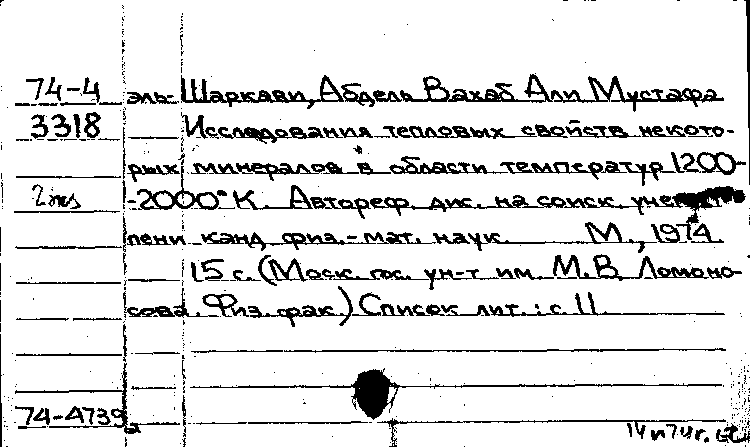 74-4 эль- Шаркави, Абдель Вахаб Али Мустафа
3318 Исследования тепловых свойств некото-
рых минералов в области температур 1200-
2 экз -2000°К. Автореф. дис. на соиск. учен.
пени канд. физ.-мат. наук. М., 1974.
15 с. (Моск. гос. ун-т им. М.В. Ломоно-
сова. Физ. фак.) Список лит.: с. 11.
74-4739
14 п 74 г.